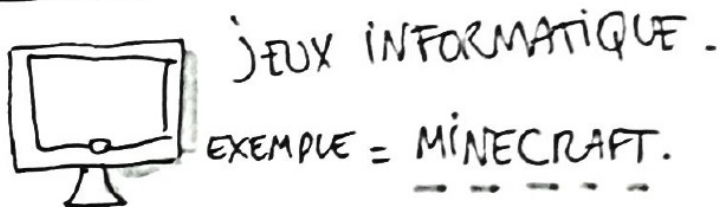 JEUX INFORMATIQUE.
EXEMPLE = MINECRAFT.